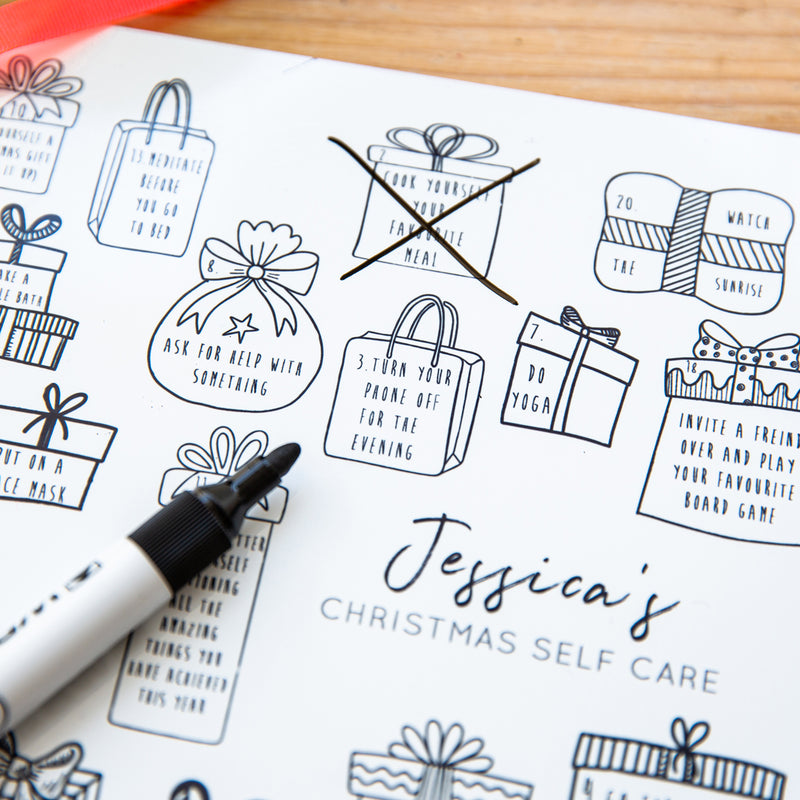 10
OURSELF A
MAS GIFT
IT UP)
13. MEDITATE
BEFORE
YOU GO
TO BED
2
COOK YOURSELF
YOUR
FAVOURITE
MEAL
20. WATCH
THE SUNRISE
AKE A
LE BATH
8.
ASK FOR HELP WITH
SOMETHING
3. TURN YOUR
PHONE OFF
FOR THE
EVENING
7.
DO
YOGA
18
INVITE A FREIND
OVER AND PLAY
YOUR FAVOURITE
BOARD GAME
PUT ON A
ACE MASK
11
TTER
RSELF
IONING
ALL THE
AMAZING
THINGS YOU
HAVE ACHIEVED
THIS YEAR
Jessica's
CHRISTMAS SELF CARE